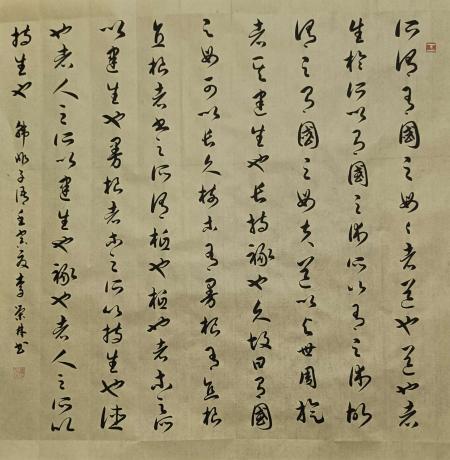 所謂有國之母〻者道也道也者
生於所以有國之術所以有之術故
謂之有國之母夫道以與世周旋
者其建生也長持祿也久故曰有國
之母可以長久樹木有曼根有直根
直根者書之所謂柢也柢也者木之所
以建生也曼根者木之所以持生也德
也者人之所以建生也祿也者人之所以
持生也 韓非子語壬寅夏李榮林書